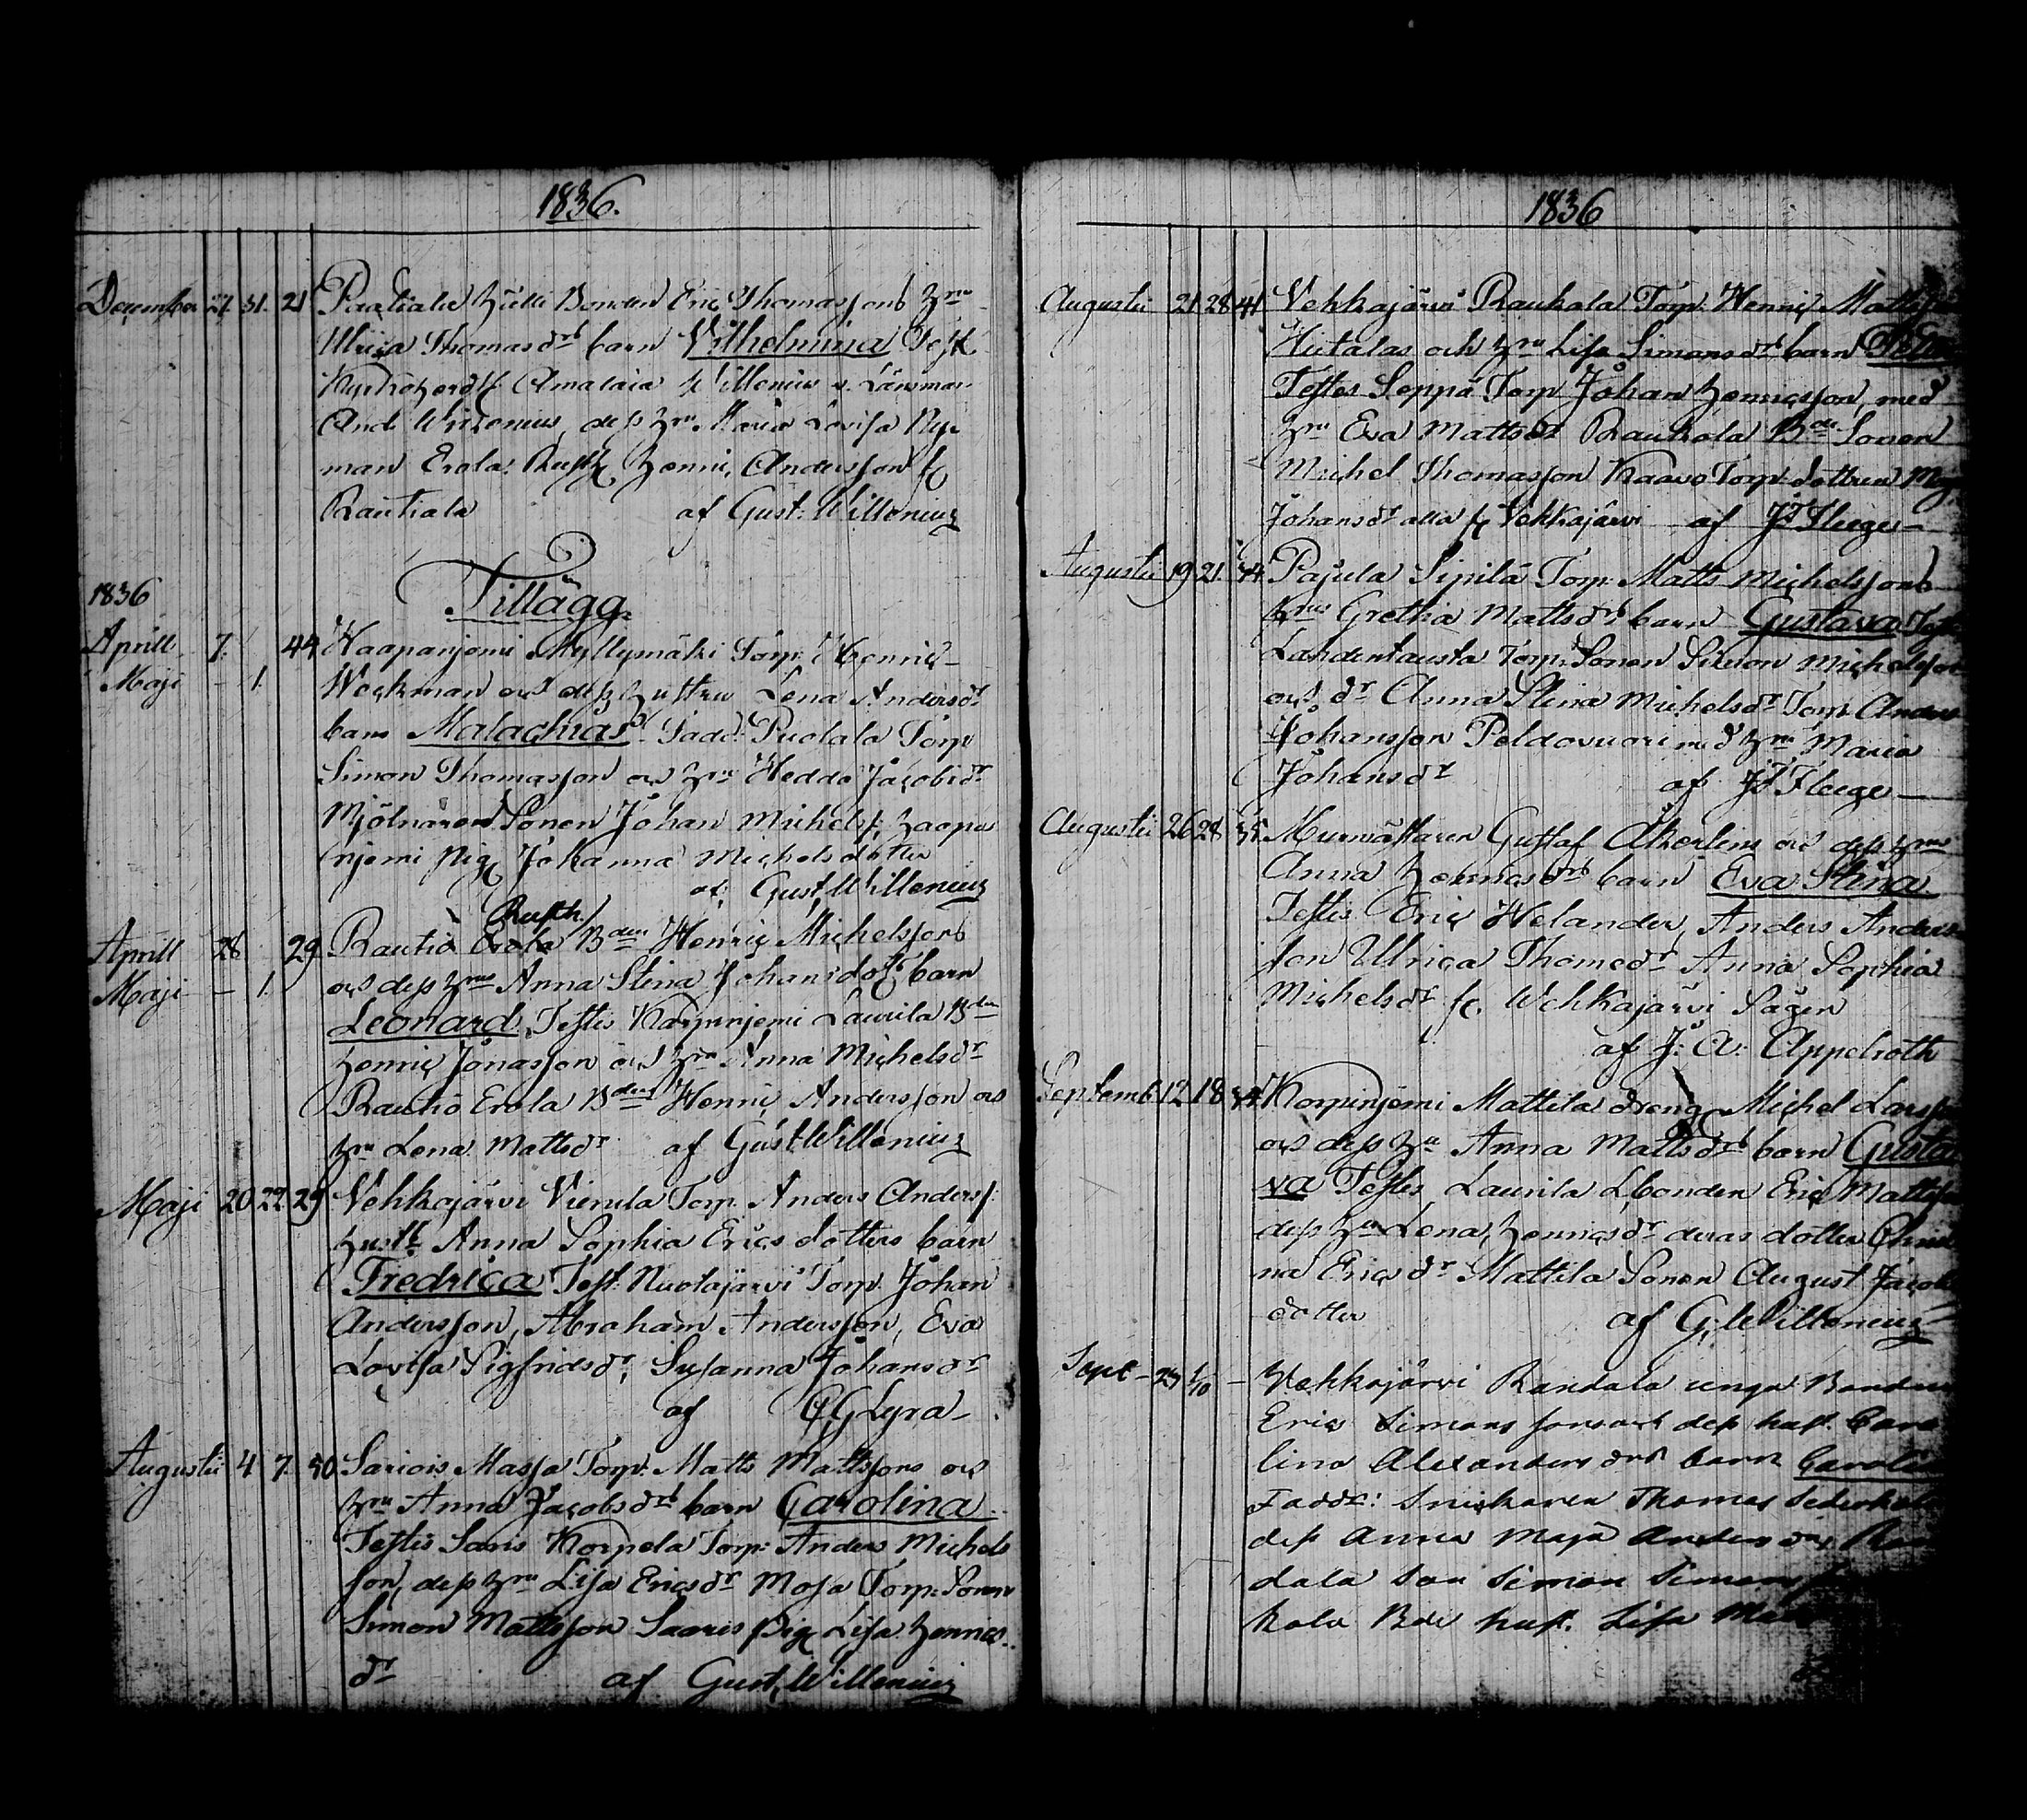 1836.
December 27. 31. 21 Bonden Eric Thomassons hru
Ulrica Thomasdrs barn Vilhelmina Test.
Amalaia Willenius o. Länsman
And. dess hru Maria Lovisa Ny-
man Erola Rusth. Henric Andersson fr.
Rautiala af Gust. Willenius
Tillägg.
1836
Aprill 7. 44 Haapanjemi Myllymäki Torp. Henric
Maji - 1. Weckman och dess hustru Lena Andersdr
barn Malachias. Fadd. Puolala Torp
Simon Thomasson och hru Hedda Jacobsdr
Mjölnaren Sonen Johan Michelss. Haapa
njemi pig. Johanna Michelsdotter
af Gust. Willenius
Rusth.
Aprill 28 29 Rautio Erola Bden Henric Michelssons
Maji - 1. och dess hrus Anna Stina Johansdotrs barn
Leonard. Testis Korpinjemi Laurila Bden
Henric Jonasson och hru Anna Michelsdr
Rautio Erola Bden Henric Andersson och
hru Lena Mattsdr af Gust. Willenius
Maji 20. 22. 29 Vehkajärvi Vierula Torp. Anders Anderss.
hustr. Anna Sophia Ericsdotters barn
Fredrica Test. Nuotajärvi Torp. Johan
Andersson, Abraham Andersson, Eva
Lovisa Sigfridsdr, Susanna Johansdr
af CG Lyra
Augustii 4 7. 30 Sariois Massa Torp. Matts Mattssons och
hru Anna Jacobsdrs barn Carolina
Testis Saris Korpela Torp. Anders Michels
son, dess hru Lisa Ericsdr Mosa Torp. Sonen
Simon Mattsson Saaris pig. Lisa Henrics
dr af Gust. Willenius
1836
Augustii 21 28 41 Vehkajärvi Raukola Torp. Henric
Hutalas och hru Lisa Simonsdrs barn
Testes Seppä Torp Johan Henricsson, med
hru Eva Mattsdr Raukola Bde Sonen
Michel Thomasson Kaavo Torp. dottren
Johansdr alla fr Vehkajärvi af
Augustii 19 21. 44. Pajula Sipilä Torp. Matts Michelssons
hrus Gretha Mattsdrs barn Gustava
Lahdentausta Torp. Sonen Simon Michelsson
och dr Anna Stina Michelsdr Torp. Anders
Johansson Peldovuori med hru Maria
Johansdr af
Augustii 26 28 35 Murmästaren Gustaf Åkerlins och dess hrus
Anna Henricsdrs barn Eva Stina
Testis Eric Welander, Anders Anders
son Ullrica Thomedr Anna Sophia
Michelsdr fr. Wehkajärvi Sågen
af J: A: Appelroth
Septemb. 12 18 34 Korpinjemi Mattila dreng. Michel Larss
och dess hru Anna Mattsdrs barn Gusta
va Testes Laurila Lbonden Eric Mattss
dess hru Lena Henricsdr deras dotter
na Ericsdr Mattila Sonen August Jacobs
dotter af G. Willenius
Sept - 29 1/10 - Vehkajärvi Randala unga Bonden
Erics Simonssons och dess hust. Caro
lina Alexandersdrs barn
Faddr: Snickaren Thomas
dess Anna Maja Andersdr,
dala Son Simon
kola Bde hust. Lisa